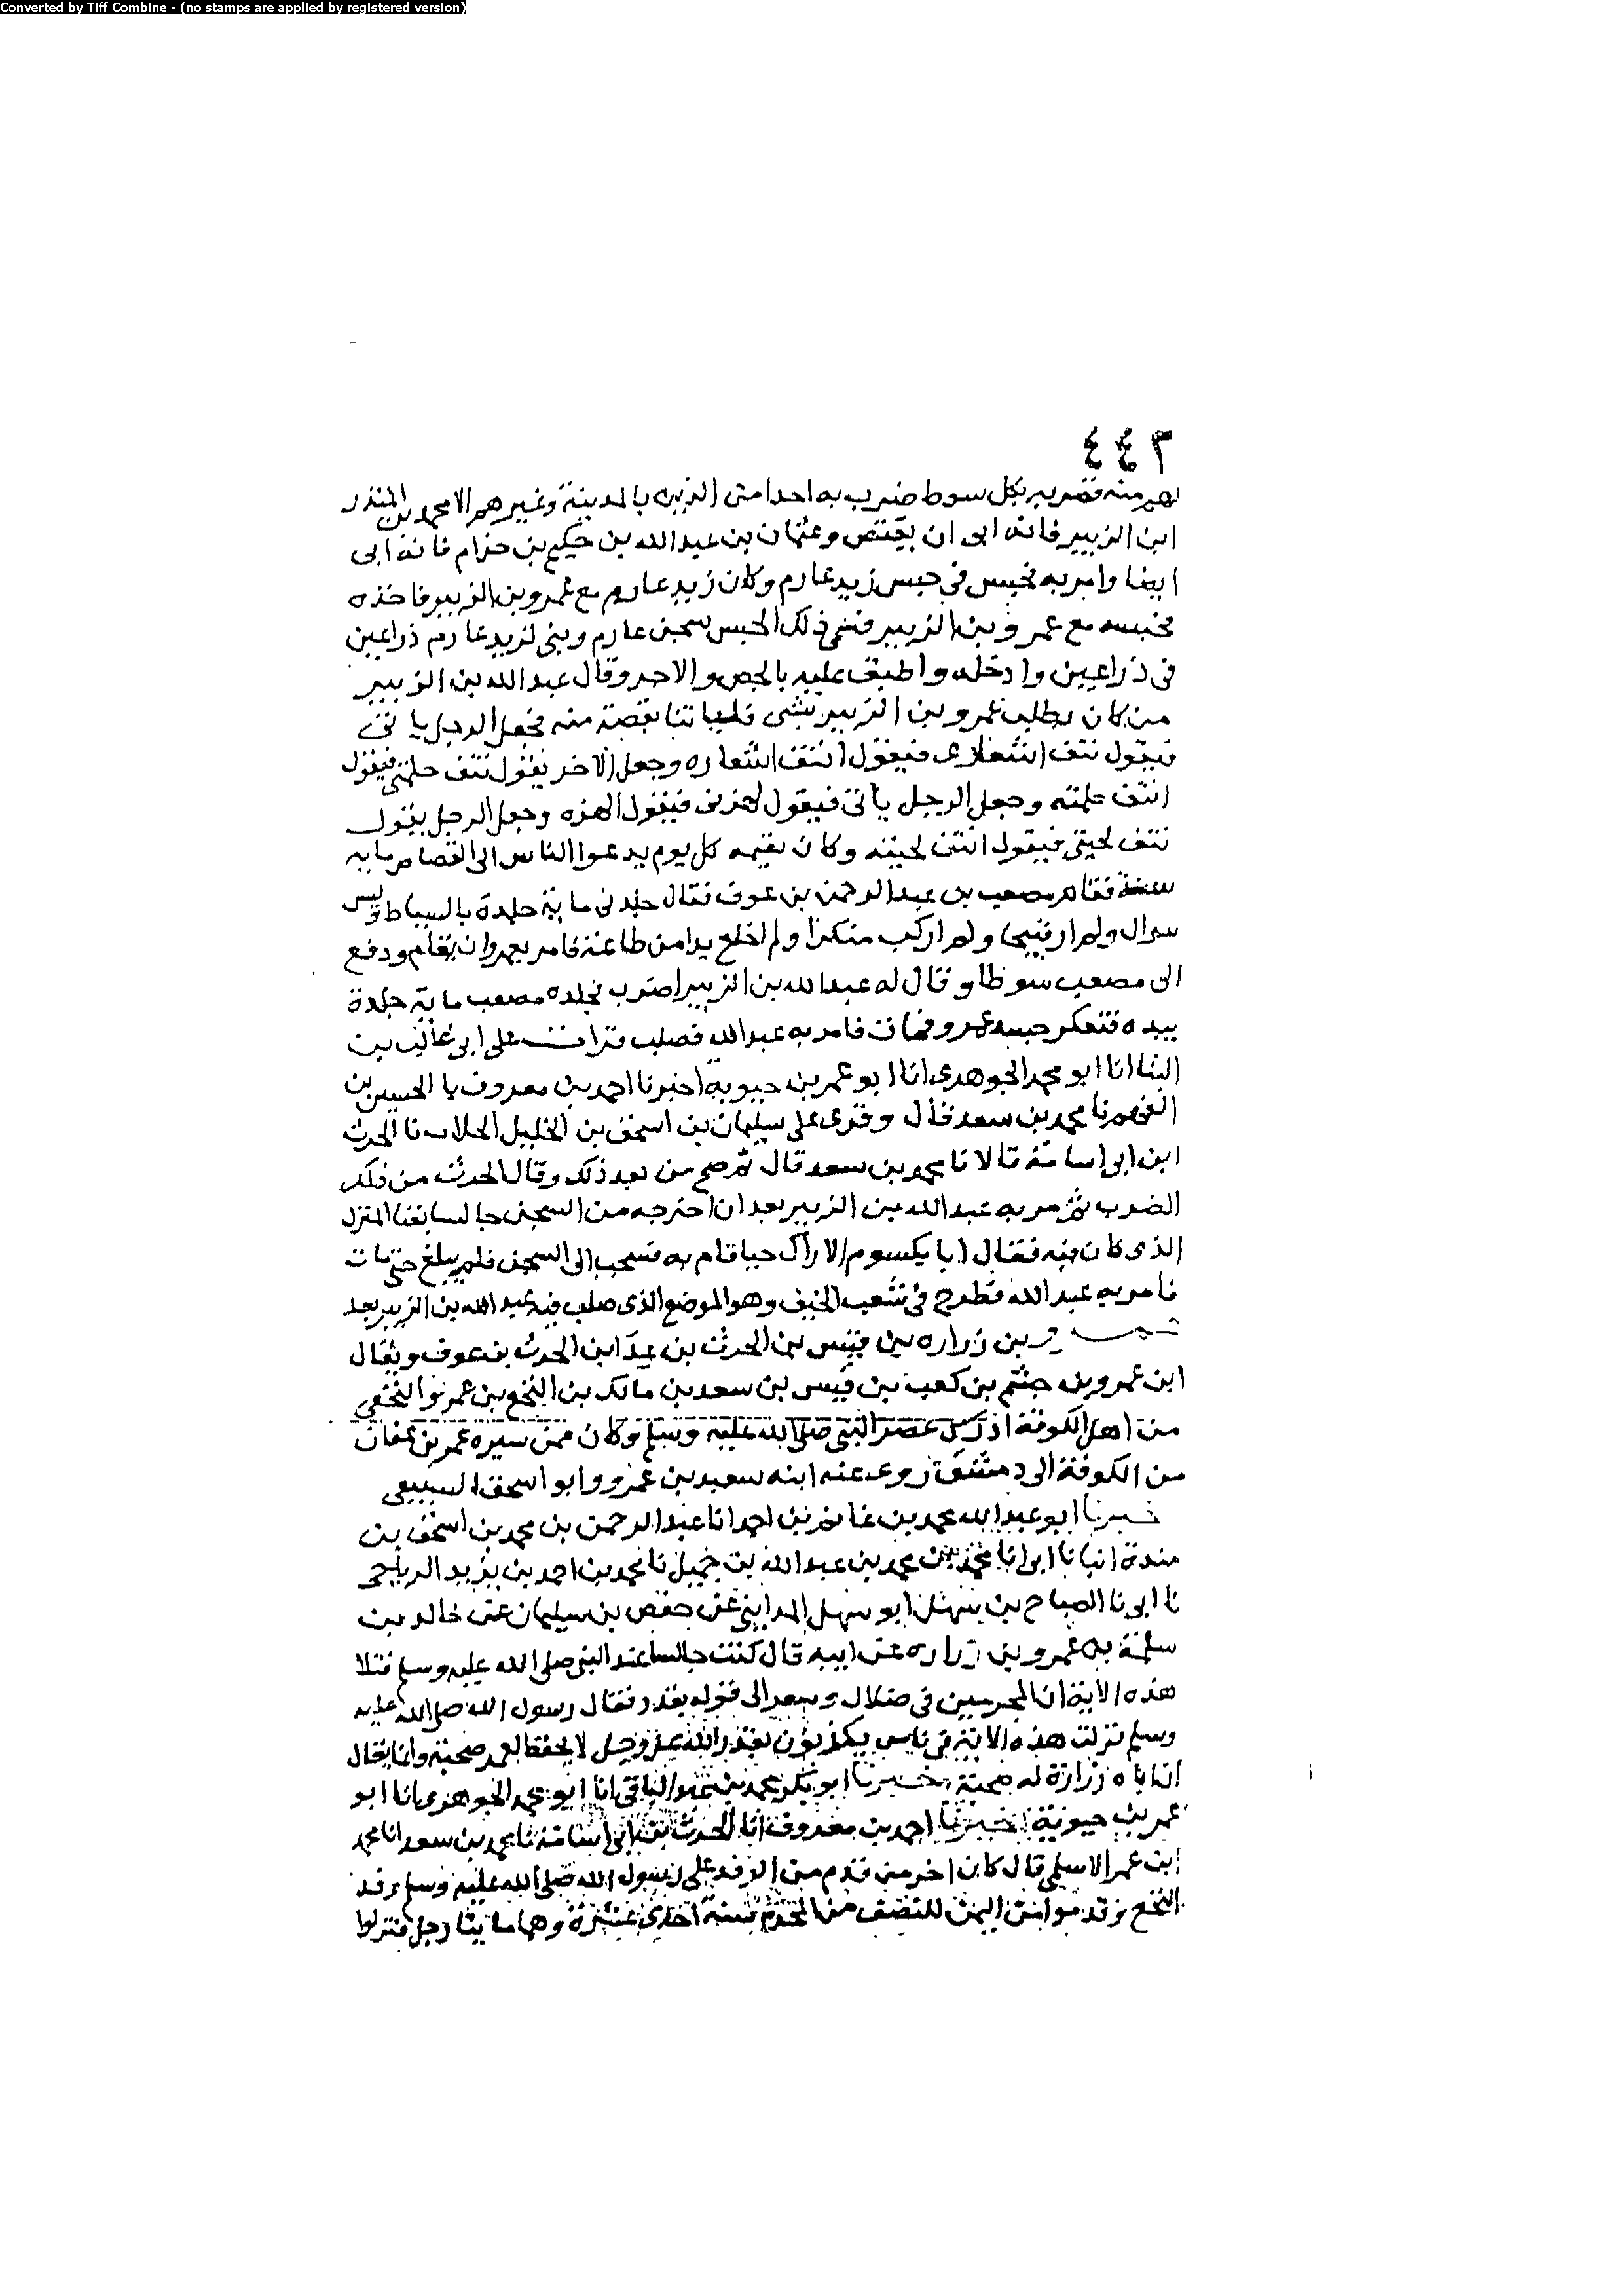 Converted by Tiff Combine - (no stamps are applied by registered version)
٤٤٣
لهم منه فضربه بكل سوط ضرب به احدا من الزبير بالمدينة وغيرهم الا محمد بن المنذر
ابن الزبير فانه ابى ان يقتص وعثمان بن عبد الله بن حكيم بن حزام فانه ابى
ايضا وامر به فحبس في حبس زيد عارم وكان زيد عارم مع عمرو بن الزبير فاخذه
فحبسه مع عمرو بن الزبير فسمي ذلك الحبس سجن عارم وبنى لزيد عارم ذراعين
في ذراعين وادخله واطبق عليه بالجص والاجر وقال عبد الله بن الزبير
من كان يطلب عمرو بن الزبير بشى فلياتنا نقصه منه فجعل الرجل ياتي
فيقول نتف اشعاري فيقول انتف اشعاره وجعل الاخر يقول نتف حلمتي فيقول
انتف حلمته وجعل الرجل ياتي فيقول لهزني فيقول الهزه وجعل الرجل يقول
نتف لحيتي فيقول انتف لحيته وكان يقيمه كل يوم يدعوا الناس الى القصاص مايه
سنة فقام مصعب بن عبد الرحمن بن عوف فقال جلدني ماية جلدة بالسياط وليس
بوال ولم ار قبيحا ولم اركب منكرا ولم اخلع يدا من طاعة فامر بعمرو ان يقام ودفع
الى مصعب سوطا وقال له عبد الله بن الزبير اضرب فجلده مصعب ماية جلدة
بيده فنعكر جسد عمرو فمات فامر به عبد الله فصلب قرات على ابي غالب بن
البنا انا ابو محمد الجوهري انا ابو عمر بن حيوية اخبرنا احمد بن معروف نا الحسين بن
الفهم نا محمد بن سعد قال وقرى على سليمان بن اسحق بن الخليل الجلاب نا الحرث
ابن ابي اسامة قالا نا محمد بن سعد قال ثم صح من بعد ذلك وقال الحرث من ذلك
الضرب ثم مر به عبد الله بن الزبير بعد ان اخرجه من السجن جالسا بفنا المنزل
الذي كان فيه فقال ابا يكسوم الا اراك حيا قام به فسحب الى السجن فلم يبلغ حتى مات
فامر به عبد الله فطرح في شعب الخيف وهو الموضع الذي صلب فيه عبد الله بن الزبير بعد
بن زراره بن قيس بن الحرث بن عدا ابن الحرث بن عوف ويقال
ابن عمرو بن جشم بن كعب بن قيس بن سعد بن مالك بن النخع بن عمرو النخعي
من اهل الكوفة ادرك عصر النبي صلى الله عليه وسلم وكان ممن سيره عمر بن عفان
من الكوفة الى دمشق روى عنه ابنه سعيد بن عمرو وابو اسحق السبيعي
خبرنا ابو عبد الله محمد بن غانم بن احمد انا عبد الرحمن بن محمد بن اسحق بن
مندة انبانا ابي انا محمد بن محمد بن عبد الله بن جميل نا محمد بن احمد بن يزيد الرياحي
نا ابي نا الصباح بن سهل ابو سهل المدايني عن حفص بن سليمان عن خالد بن
سلمة به عمرو بن زراره عن ابيه قال كنت جالسا عند النبي صلى الله عليه وسلم فتلا
هذه الاية ان المجرمين في ضلال وسعر الى قوله بقدر فقال رسول الله صلى الله عليه
وسلم نزلت هذه الاية في ناس يكذبون بقدر الله عز وجل لا يحفظ لعمر صحبة وانما يقال
ان اباه زرارة له صحبة خبرنا ابو بكر محمد بن عبد الباقي انا ابو محمد الجوهري انا ابو
عمر بن حيوية اخبرنا احمد بن معروف انا الحرث بن ابي اسامة نا محمد بن سعد انا محمد
ابن عمر الاسلمي قال كان اخر من قدم من الوفد على رسول الله صلى الله عليه وسلم وفد
النخع وقدموا من اليمن للنصف من المحرم سنة احدى عشرة وهم مايتا رجل فنزلوا